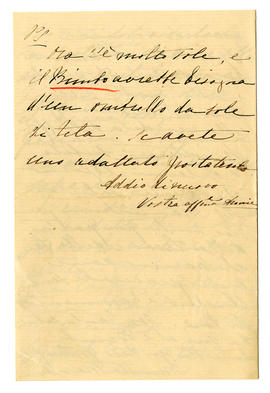 PS
Ma c'è molto sole, e
il Bimbo avrebbe bisogno
d'un ombrello da sole
di tela. Se avete
uno adattato portatelo
Addio di nuovo
Vostra affma